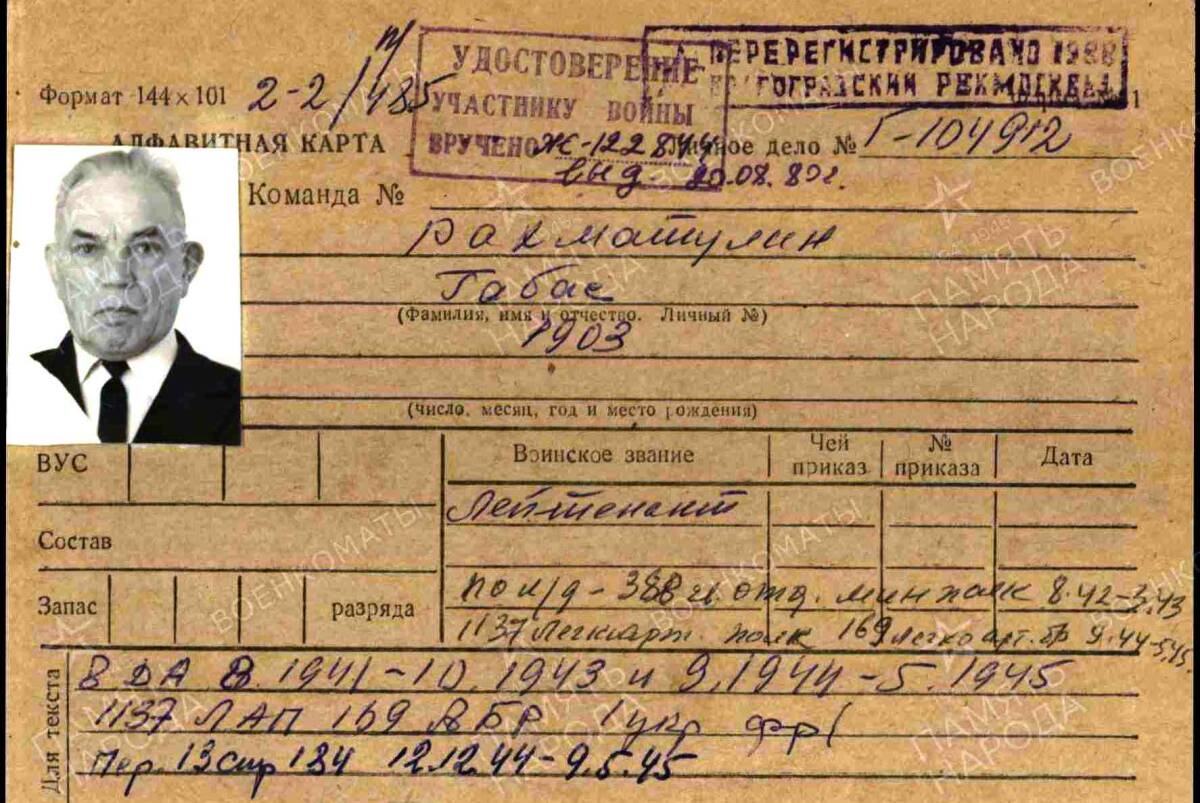 Формат 144×101
2-2/485
УДОСТОВЕРЕНИЕ
УЧАСТНИКУ ВОЙНЫ
ВРУЧЕНО Ж-122844
выд 20.08.80г.
ПЕРЕРЕГИСТРИРОВАНО 1988
АЛФАВИТНАЯ КАРТА
Личное дело № Г-104912
Команда №
Рахматулин
Габас
(Фамилия, имя и отчество. Личный №)
1903
(число, месяц, год и место рождения)
ВУС
Воинское звание
Чей приказ
№ приказа
Дата
Лейтенант
Состав
Запас
разряда
по л/д - 388 отд. мин полк 8.42-3.43
1137 Легкоарт. полк 169 легко арт. бр 9.44-5.45
Для текста
В ДА 8.1941-10.1943 и 9.1944-5.1945
1137 ЛАП 169 АБР 1 укр фр
Пер. 13 стр 184 12.12.44-9.5.45
ПАМЯТЬ НАРОДА
ВОЕНКОМАТЫ